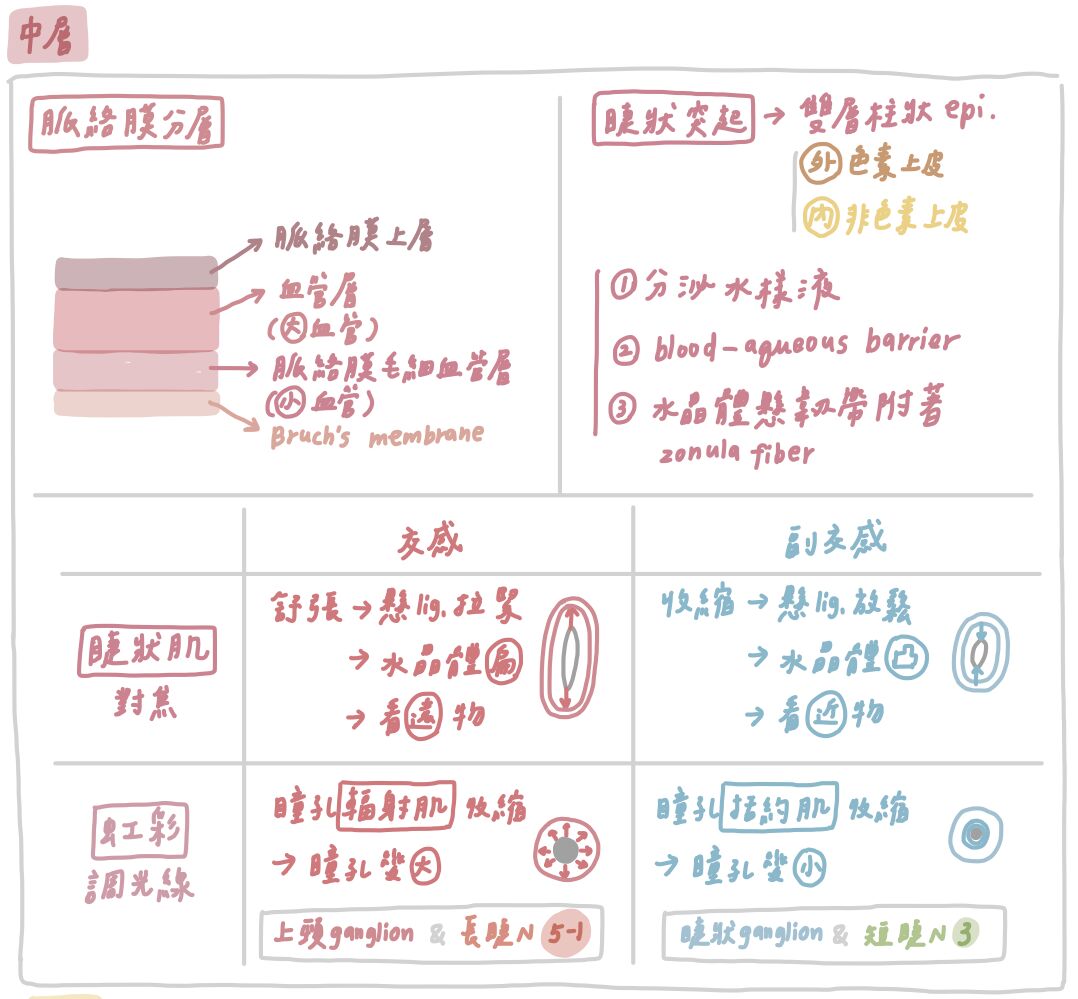 中層
脈絡膜分層
脈絡膜上層
血管層
(大血管)
脈絡膜毛細血管層
(小血管)
Bruch's membrane
睫狀突起 → 雙層柱狀 epi.
外 色素上皮
內 非色素上皮
① 分泌水樣液
② blood-aqueous barrier
③ 水晶體懸韌帶附著
zonula fiber
交感
副交感
睫狀肌
對焦
舒張 → 懸lig. 拉緊
→ 水晶體扁
→ 看遠物
收縮 → 懸lig. 放鬆
→ 水晶體凸
→ 看近物
虹彩
調光線
瞳孔輻射肌收縮
→ 瞳孔變大
上頸ganglion & 長睫N 5-1
瞳孔括約肌收縮
→ 瞳孔變小
睫狀ganglion & 短睫N 3